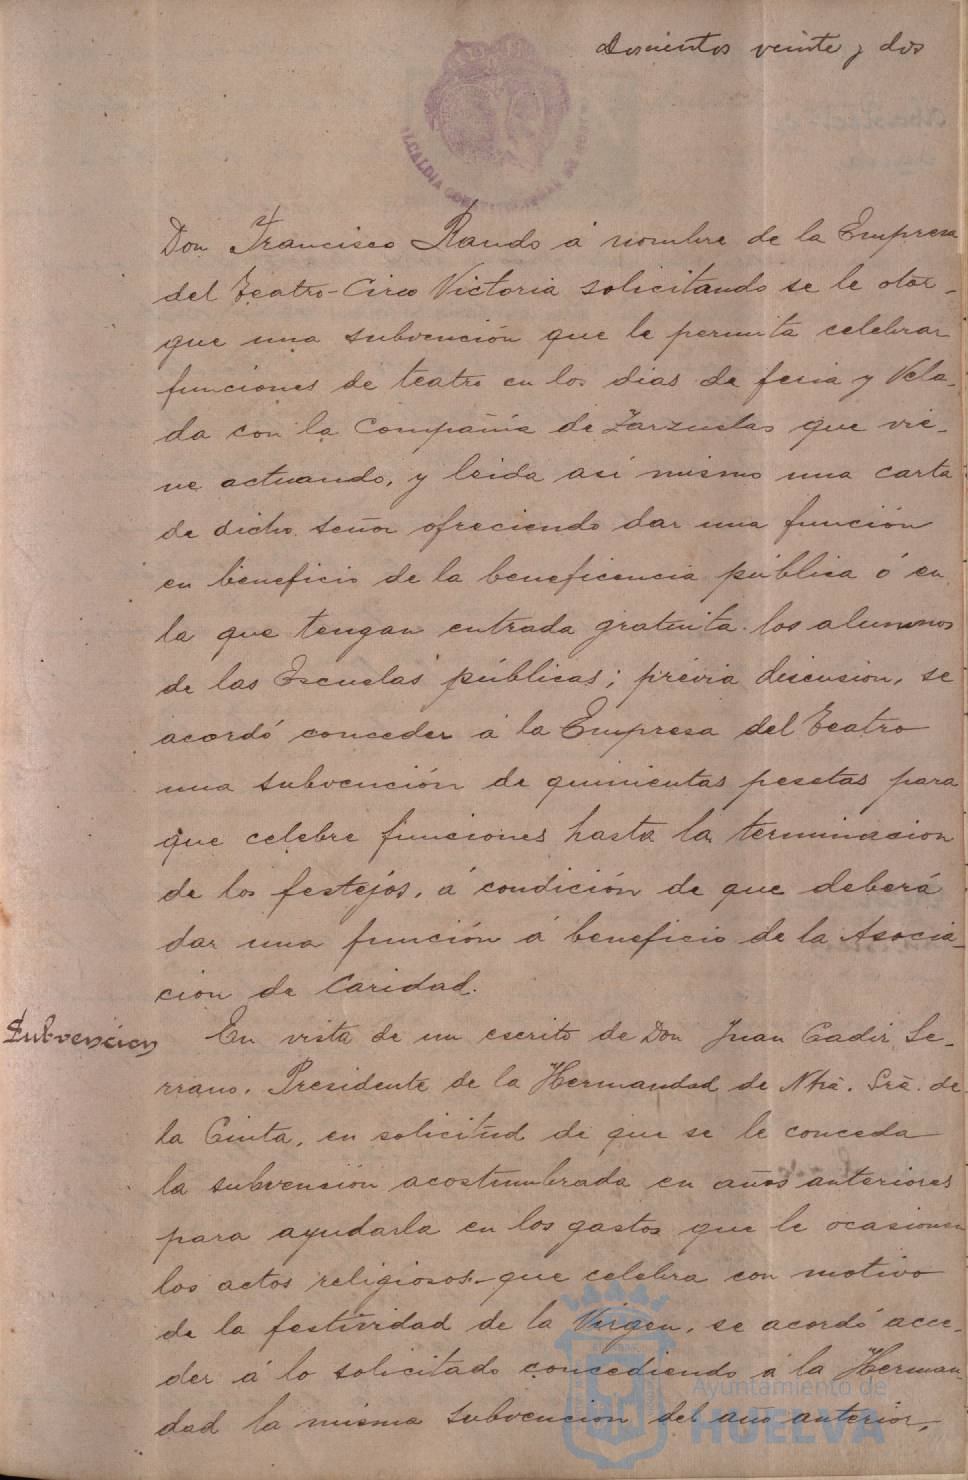 Doscientos veinte y dos
ALCALDIA CONSTITUCIONAL DE HUELVA
Don Francisco Rando á nombre de la Empresa
del Teatro-Circo Victoria solicitando se le otor-
gue una subvención que le permita celebrar
funciones de teatro en los dias de feria y Vela-
da con la Compañia de Zarzuelas que vie-
ne actuando, y leida asi mismo una carta
de dicho señor ofreciendo dar una función
en beneficio de la beneficencia pública ó en
la que tengan entrada gratuita los alumnos
de las Escuelas públicas; prévia discusion, se
acordó conceder á la Empresa del Teatro
una subvención de quinientas pesetas para
que celebre funciones hasta la terminacion
de los festejos, á condición de que deberá
dar una función á beneficio de la Asocia-
cion de Caridad.
Subvencion
En vista de un escrito de Don Juan Cadir Se-
rrano, Presidente de la Hermandad de Ntra. Sra. de
la Cinta, en solicitud de que se le conceda
la subvension acostumbrada en años anteriores
para ayudarla en los gastos que le ocasionen
los actos religiosos que celebra con motivo
de la festividad de la Virgen, se acordó acce-
der á lo solicitado concediendo á la Herman
dad la misma subvencion del año anterior,
Ayuntamiento de
HUELVA